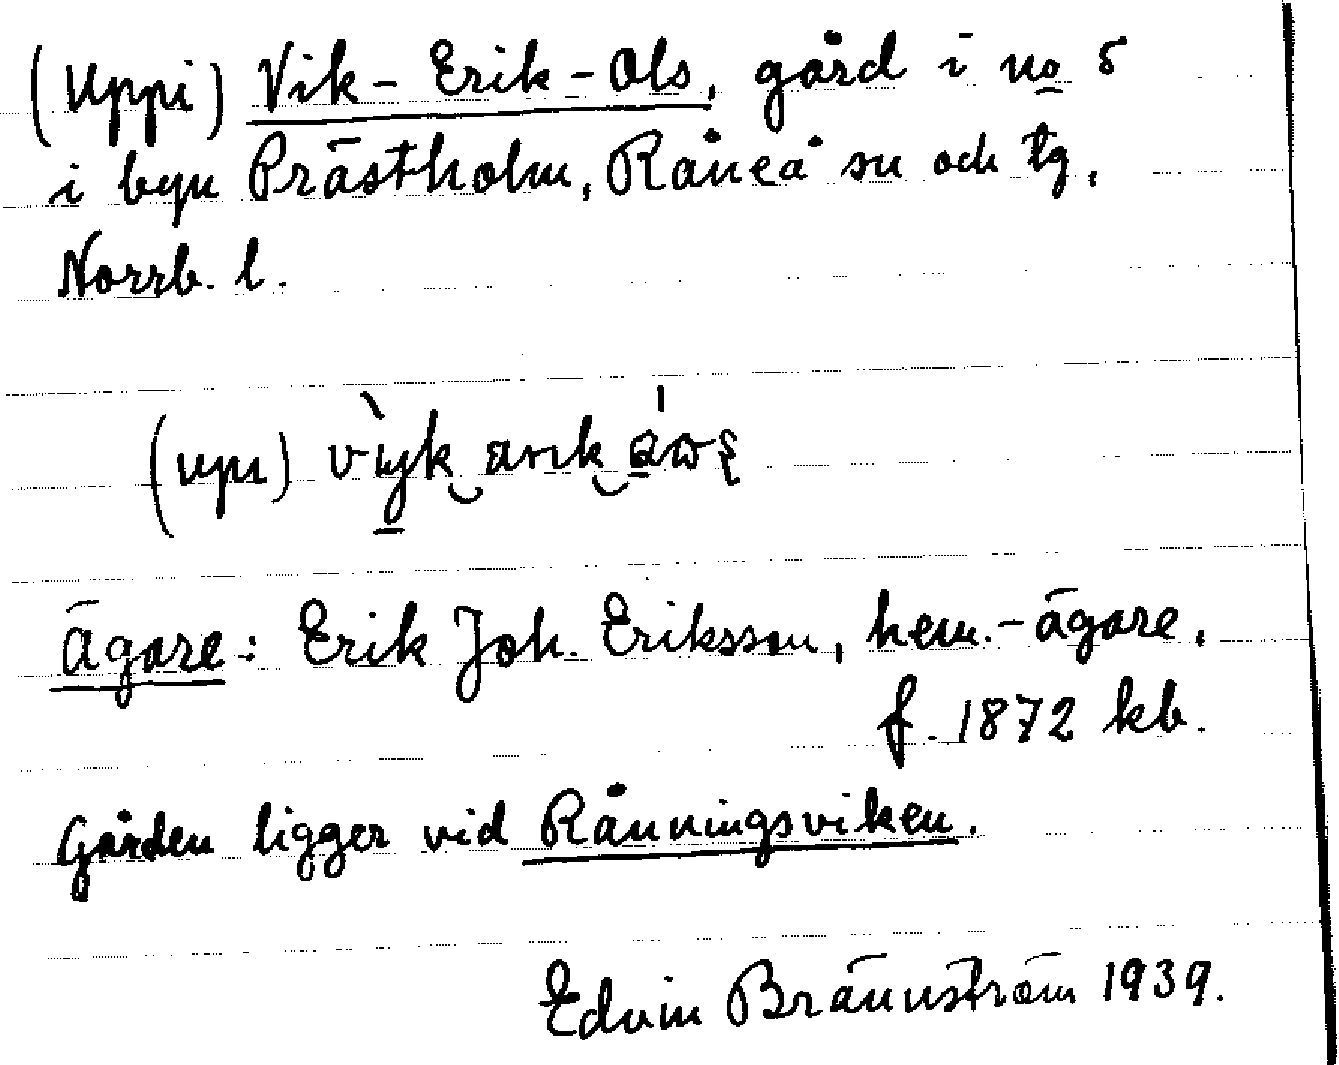 (Uppi) Vik-Erik-Ols, gård i no 5
i byn Prästholm, Råneå sn och tg,
Norrb. l.
(upi)
Ägare: Erik Joh. Eriksson, hem.-ägare,
f. 1872 kb.
Gården ligger vid Rånningsviken.
Edvin Brännström 1939.